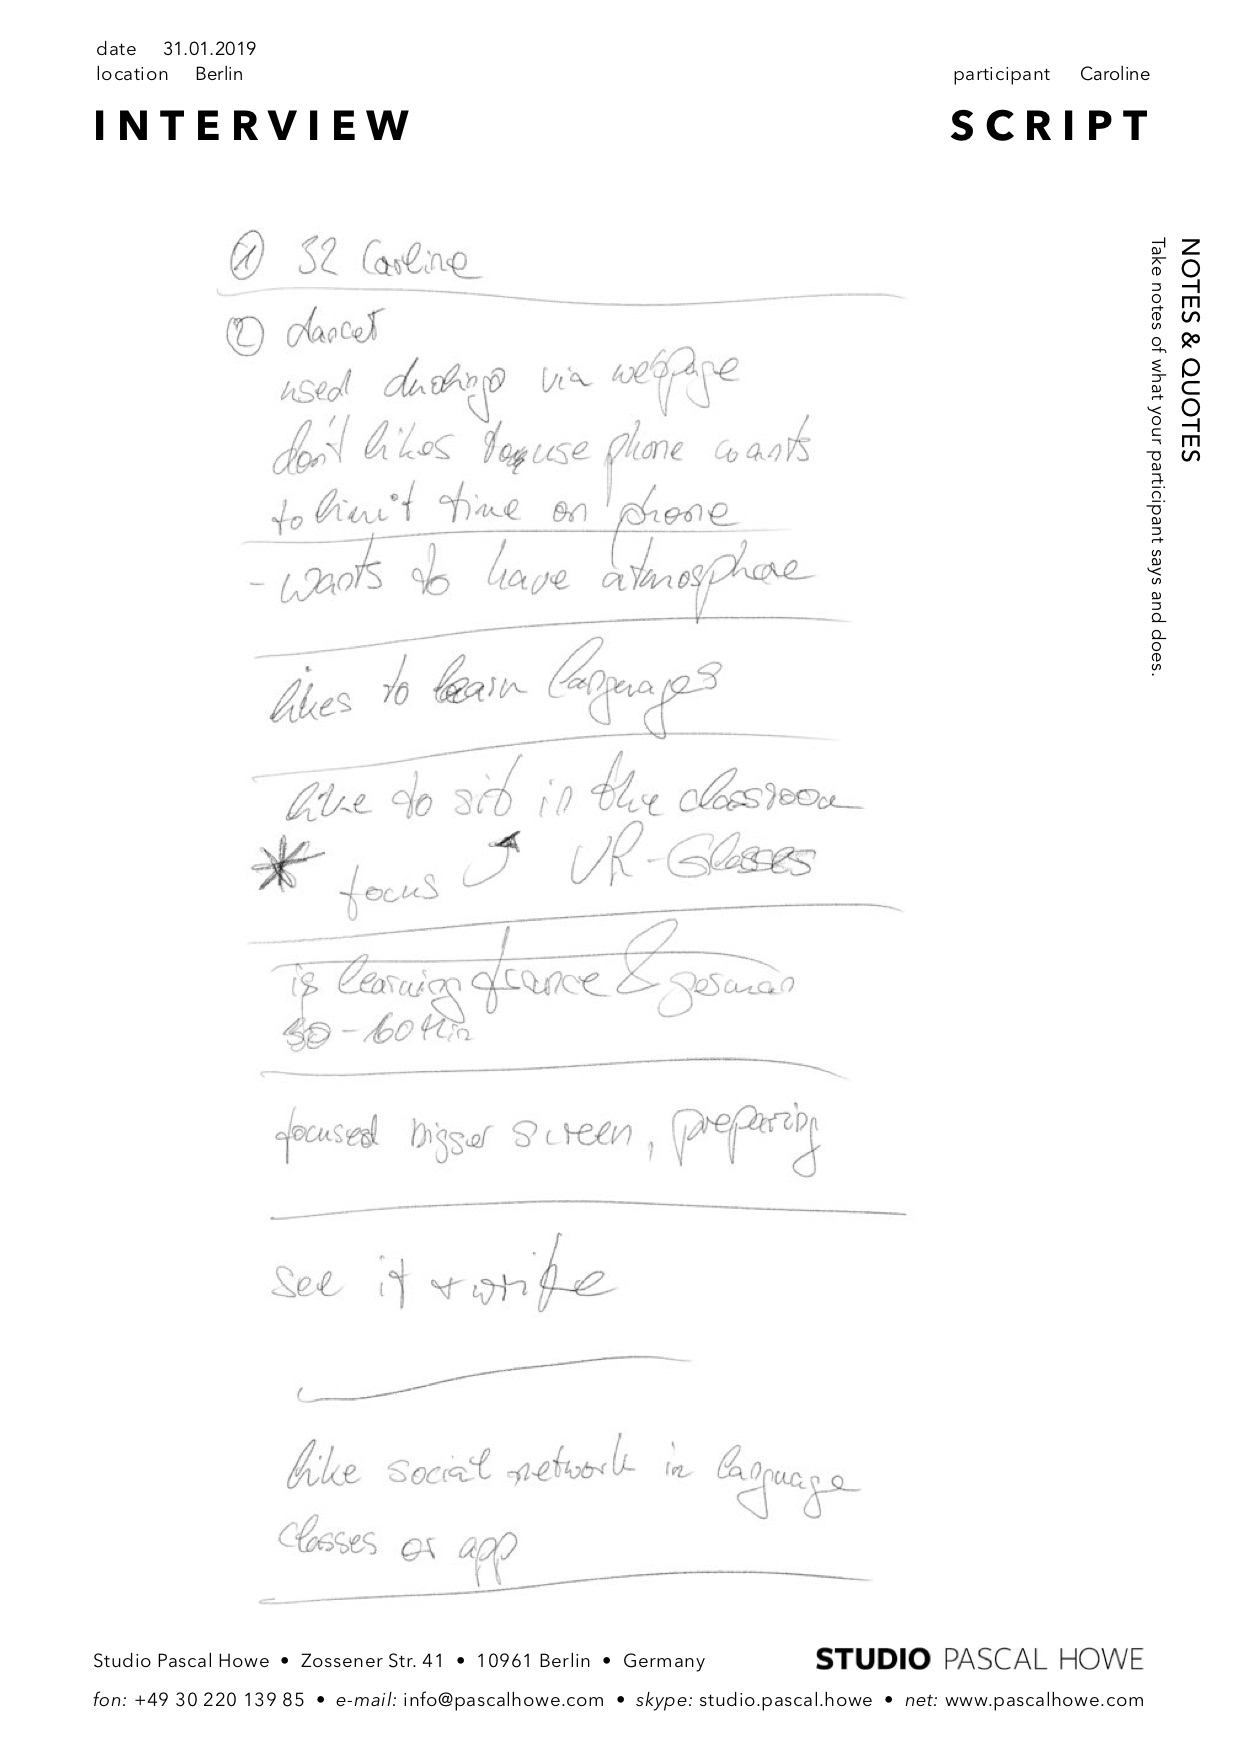 date 31.01.2019
location Berlin
participant Caroline
INTERVIEW SCRIPT
NOTES & QUOTES
Take notes of what your participant says and does.
① 32 Caroline
② dancer
used duolingo via webpage
don't likes to use phone wants
to limit time on phone
- wants to have atmosphere
likes to learn languages
like to sit in the classroom
focus VR-Glasses
is learning france & german
30-60 Min
focused bigger screen, preparing
see it + write
like social network in language
classes or app
Studio Pascal Howe • Zossener Str. 41 • 10961 Berlin • Germany
STUDIO PASCAL HOWE
fon: +49 30 220 139 85 • e-mail: info@pascalhowe.com • skype: studio.pascal.howe • net: www.pascalhowe.com